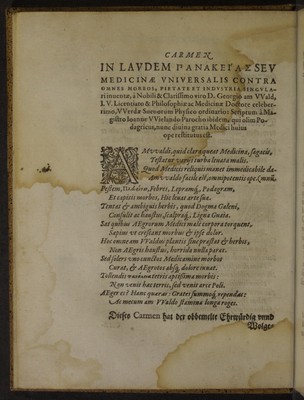 CARMEN
IN LAVDEM PANAKEΓAΣ SEV
MEDICINÆ VNIVERSALIS CONTRA
OMNES MORBOS, PIETATE ET INDVSTRIA SINGVLA-
ri inuentæ, à Nobili & Clarissimo viro D. Georgio am VVald,
I. V. Licentiato & Philosophiæ ac Medicinæ Doctore celeber-
rimo, VVerdæ Sueuorum Physico ordinario: Scriptum à Ma-
gistro Ioanne VViesundo Parocho ibidem: qui olim Po-
dagricus, nunc diuina gratia Medici huius
ope restitutus est.
AM vvaldi, quid clara queat Medicina, sagacis,
Testatur varijs turba leuata malis.
Quod Medicis reliquis manet immedicabile
am vvaldo facile est, omnipotentis ope.
Pestem, Febres, Lepramq́, Podagram,
Et capitis morbos, Hic leuat arte sua.
Tentas & ambiguis herbis, quod Dogma Galeni,
Consulit ac haustus, scalpraq́, Ligna Guaia.
Lat quibus AEgrorum Medici male corpora torquent,
Sapius ve crescunt morbus & ipse dolor.
Hoc metuent am VValdus plantis siue prastat & herbis,
Non AEgris haustus, horrida nulla parat.
Sed solers vno cunctos Medicamine morbos
Curat, & AEgrotos absq́ dolore iuuat.
Tollendis tetris aptissima morbis:
Non venit hac terris, sed venit arce Poli.
AEger es? Hanc quæras: Grates summoq́ rependas:
Ac mecum am VValdo stamina longa roges.
Dieses Carmen hat der obbemelte Ehrwürdig vnnd
Wolge-